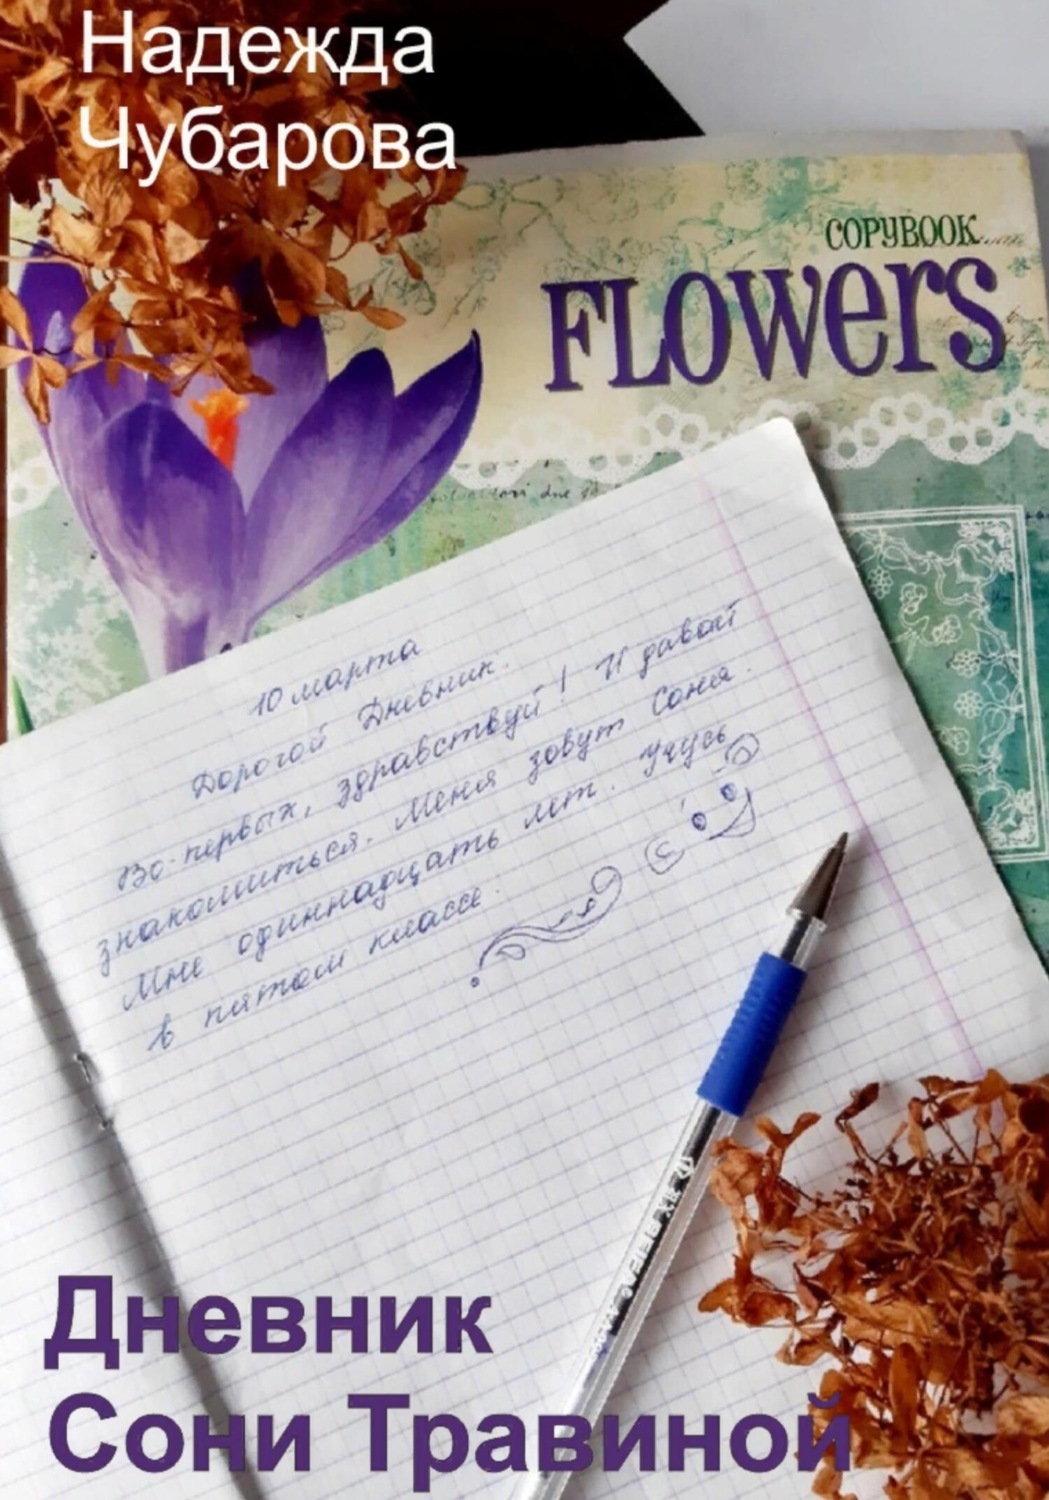 Надежда
Чубарова
COPYBOOK
FLOWERS
10 марта
Дорогой Дневник.
Во-первых, здравствуй! И давай
знакомиться. Меня зовут Соня.
Мне одиннадцать лет. Учусь
в пятом классе.
Дневник
Сони Травиной